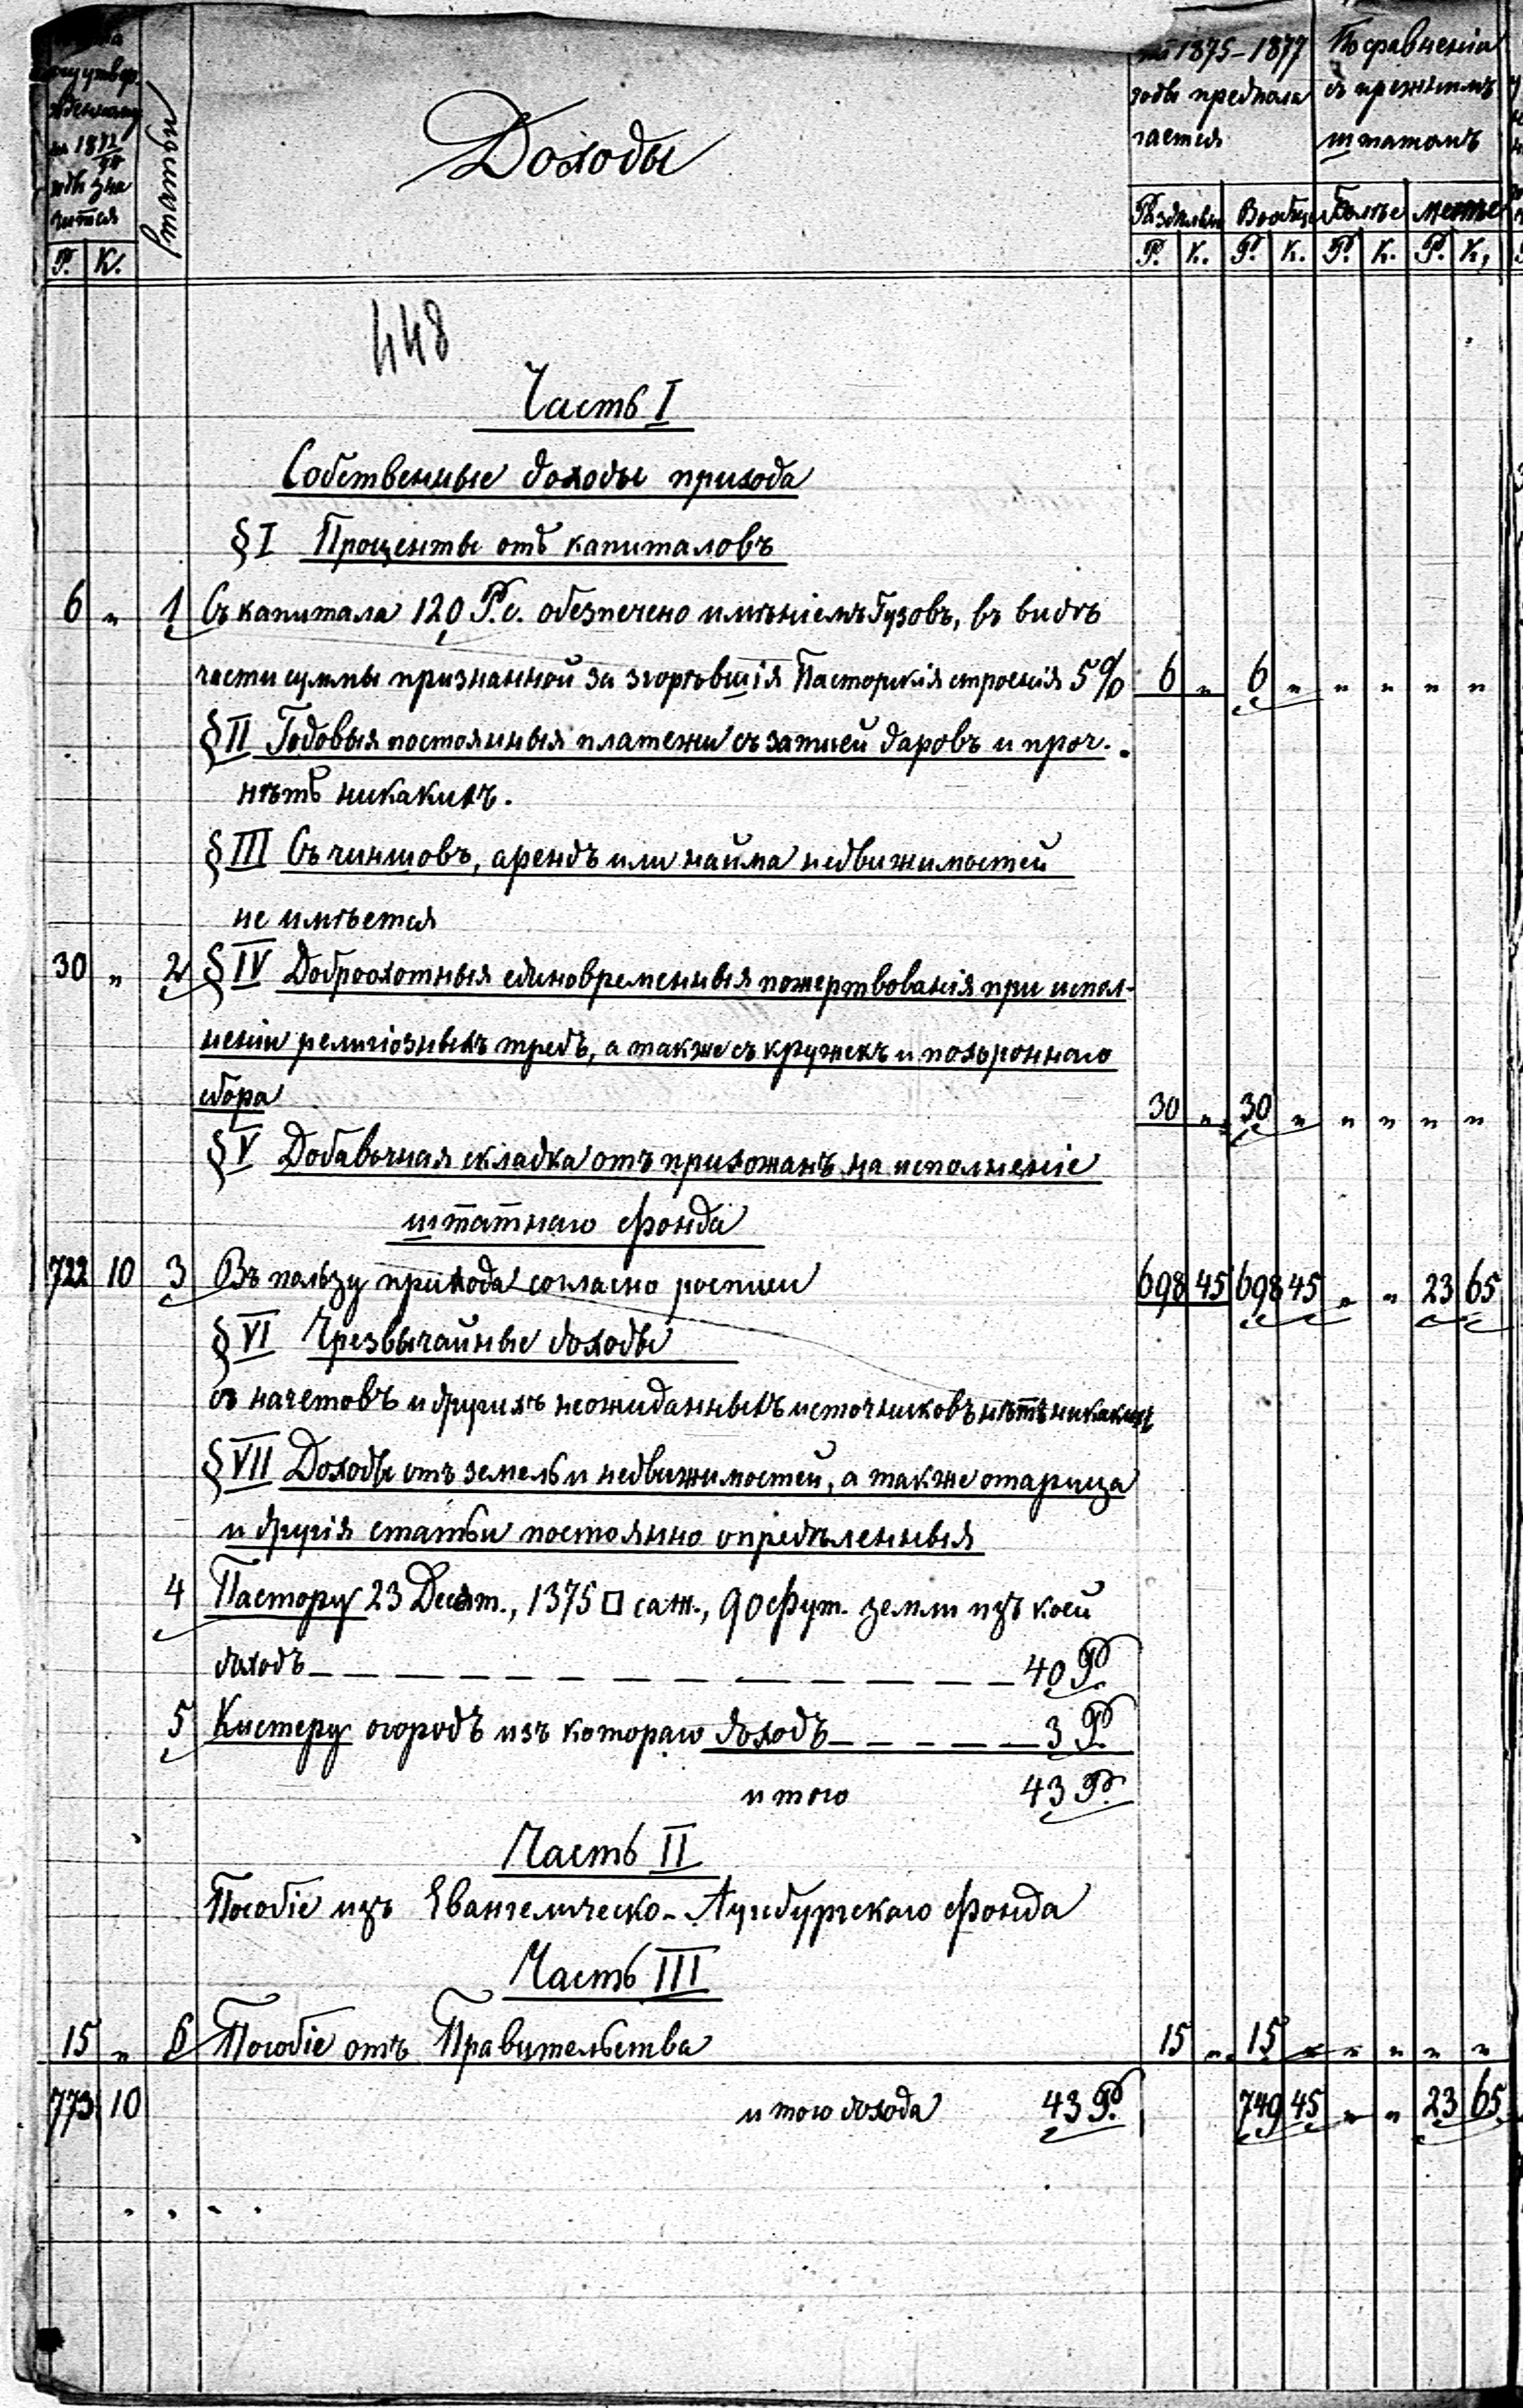 утвер
жденному
на 1872/74
годъ зна
чится
Р. К.
пункты
Доходы
на 1875–1877
годы предпола
гается
По сравненію
съ прежнимъ
штатомъ
Раздѣльно Вообще Болѣе Менѣе
Р. К. Р. К. Р. К. Р. К.
448
Часть I
Собственные доходы прихода
§ I Проценты отъ капиталовъ
6 „ 1 Съ капитала 120 Р.с. обезпечено имѣніемъ Гузовъ, въ видѣ
части суммы признанной за згорѣвшія Пасторскія строенія 5% 6 „ 6 „ „ „ „ „
§ II Годовыя постоянныя платежи съ записей даровъ и проч.
нѣтъ никакихъ.
§ III Съ чиншовъ, арендъ или найма недвижимостей
не имѣется
30 „ 2 § IV Доброхотныя единовременныя пожертвованія при испол-
неніи религіозныхъ требъ, а также съ кружекъ и похороннаго
сбора 30 „ 30 „ „ „ „ „
§ V Добавочная складка отъ прихожанъ на исполненіе
штатнаго фонда
722 10 3 Въ пользу прихода согласно росписи 698 45 698 45 „ „ 23 65
§ VI Чрезвычайные доходы
съ начетовъ и другихъ неожиданныхъ источниковъ нѣтъ никакихъ
§ VII Доходы отъ земель и недвижимостей, а также
и другія статьи постоянно опредѣленныя
4 Пастору 23 Десят., 1375 □ саж., 90 фут. земли изъ коей
доходъ — — — — — — — — — — — — 40 Р.
5 Кистеру огородъ изъ котораго доходъ — — — — — 3 Р.
итого 43 Р.
Часть II
Пособіе изъ Евангелическо-Аугсбургскаго фонда
Часть III
15 „ 6 Пособіе отъ Правительства 15 „ 15 „ „ „ „ „
773 10 итого дохода 43 Р. 749 45 „ „ 23 65